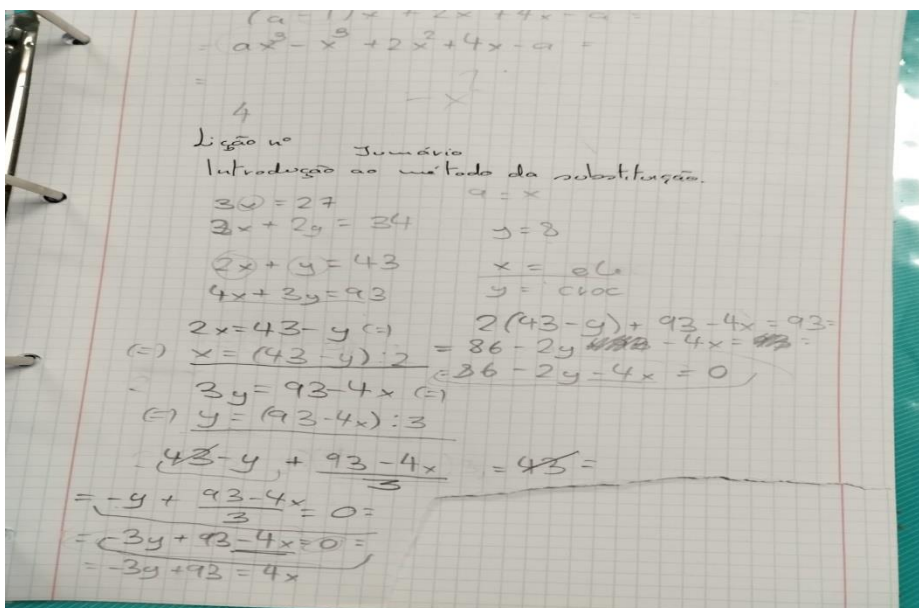 (a-1)x + 2x + 4x - a =
= ax³ - x³ + 2x² + 4x - a =
=
4
- x
Lição nº Sumário
Introdução ao método da substituição.
a = x
3x = 27
2x + 2y = 34
y = 8
2x + y = 43
4x + 3y = 93
x =
y = croc
2x = 43 - y (=)
(=) x = (43 - y) : 2
3y = 93 - 4x (=)
(=) y = (93 - 4x) : 3
2(43 - y) + 93 - 4x = 93 =
= 86 - 2y - 4x = =
= 86 - 2y - 4x = 0
43 - y + 93 - 4x / 3 = 43 =
= -y + 93 - 4x / 3 = 0 =
= -3y + 93 - 4x = 0 =
= -3y + 93 = 4x